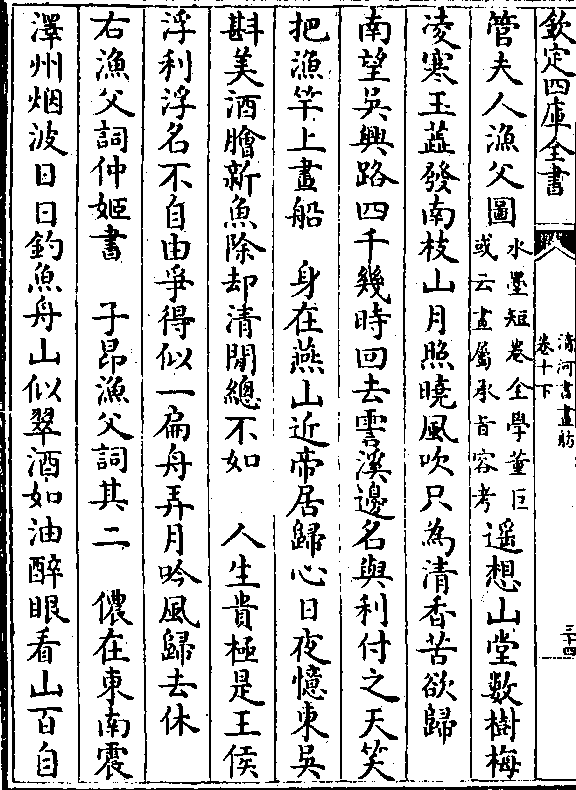 欽定四庫全書
清河書畫舫
卷十下
三十四
管夫人漁父圖 水墨短卷全學董巨 或云畫屬承旨容考 遥想山堂數樹梅
凌寒玉蕋發南枝山月照曉風吹只為清香苦欲歸
南望吳興路四千幾時回去霅溪邊名與利付之天笑
把漁竿上畫船 身在燕山近帝居歸心日夜憶東吳
斟美酒膾新魚除却清閒總不如 人生貴極是王侯
浮利浮名不自由爭得似一扁舟弄月吟風歸去休
右漁父詞仲姬書 子昂漁父詞其二 儂在東南震
澤州烟波日日釣魚舟山似翠酒如油醉眼看山百自